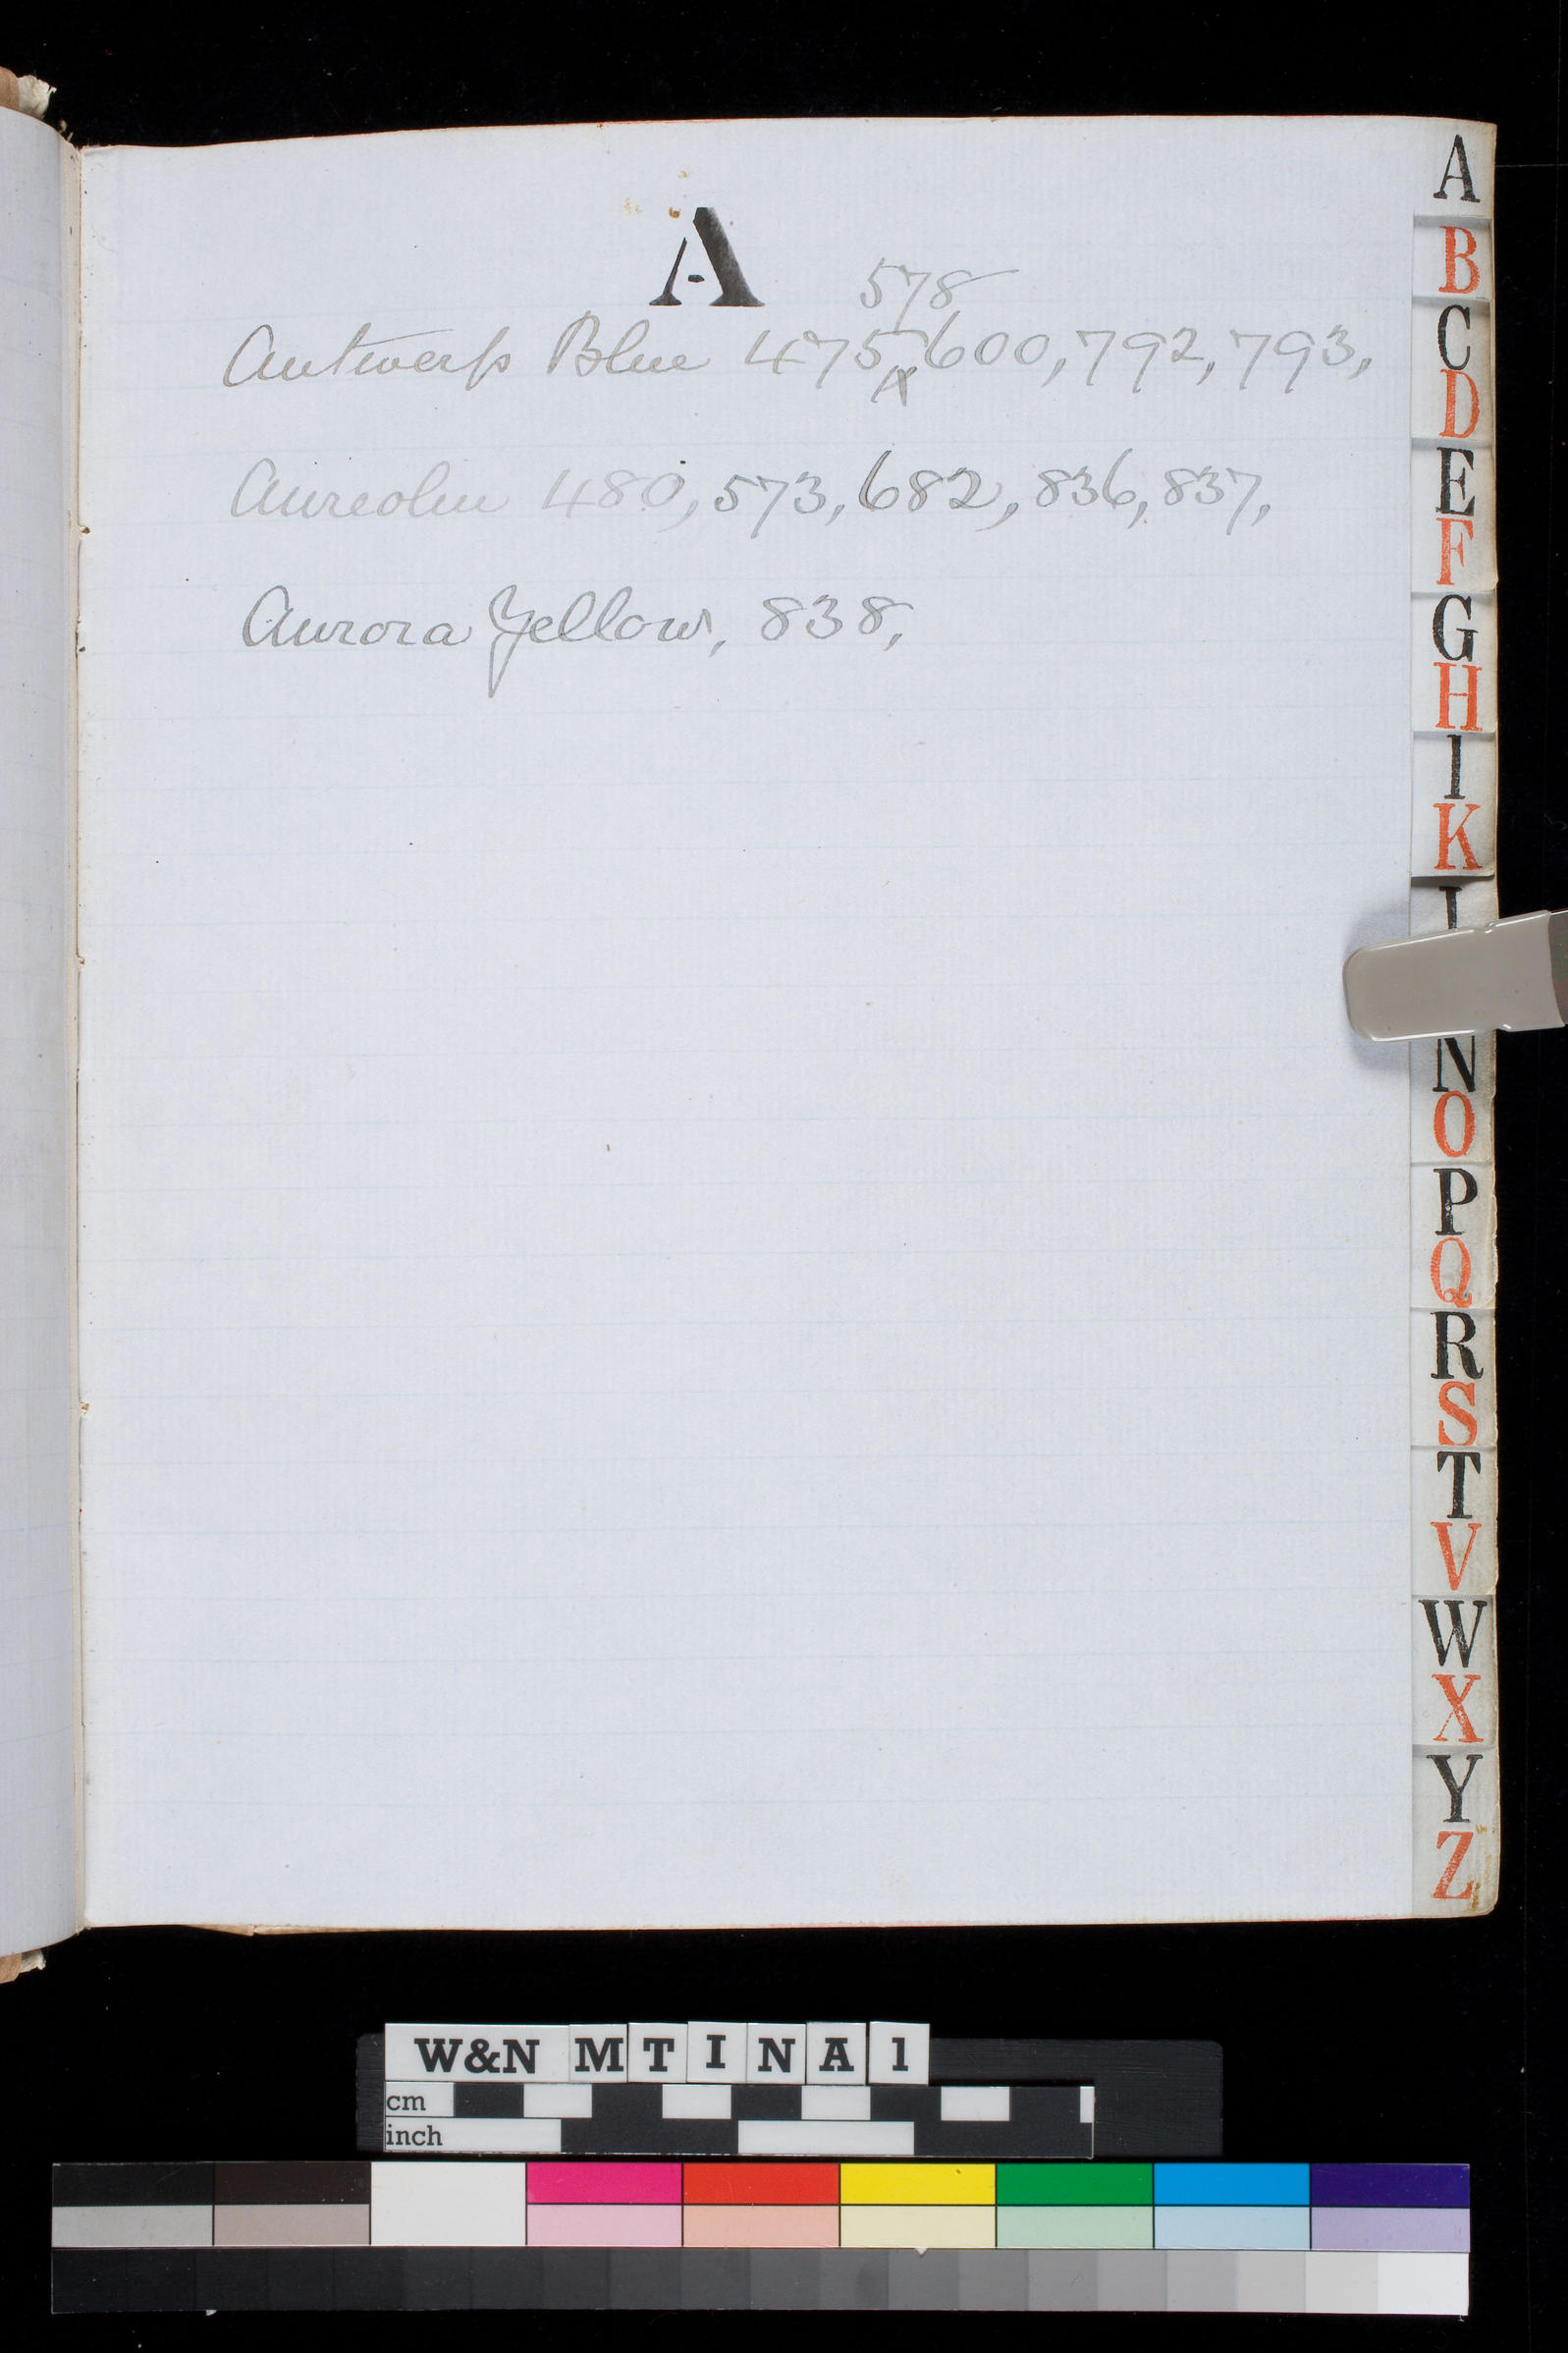 A
578
Antwerp Blue 475, 600, 792, 793,
Aureolin 480, 573, 682, 836, 837,
Aurora Yellow, 838,
A
B
C
D
E
F
G
H
I
K
N
O
P
Q
R
S
T
V
W
X
Y
Z
W&N M T I N A 1
cm
inch